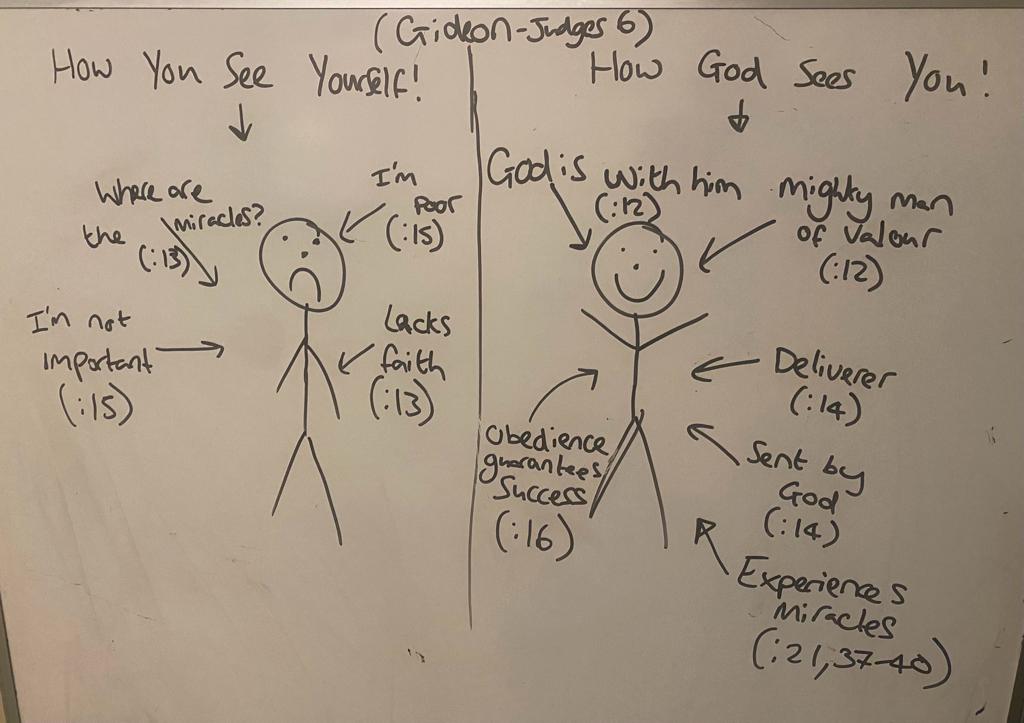 (Gideon-Judges 6)
How You See Yourself!
Where are
the miracles?
(:13)
I'm
poor
(:15)
I'm not
important
(:15)
Lacks
faith
(:13)
How God Sees You!
God is with him
(:12)
mighty man
of valour
(:12)
Deliverer
(:14)
Obedience
guarantees
Success
(:16)
Sent by
God
(:14)
Experiences
Miracles
(:21,37-40)